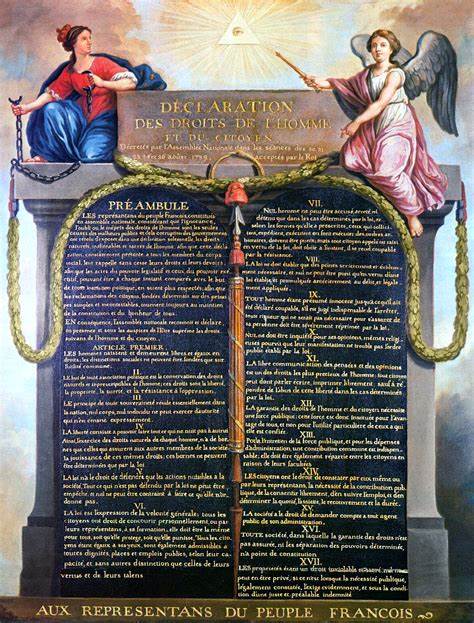 DÉCLARATION
DES DROITS DE L'HOMME
ET DU CITOYEN,
Décrétés par l'Assemblée Nationale dans les séances des 20, 21
23, 24 et 26 août 1789, acceptés par le Roi
PRÉAMBULE
LES représentans du peuple François, constitués
en assemblée nationale, considérant que l'ignorance,
l'oubli ou le mépris des droits de l'homme sont les seules
causes des malheurs publics et de la corruption des gouvernemens
ont résolu d'exposer dans une déclaration solemnelle, les droits
naturels, inaliénables et sacrés de l'homme; afin que cette décla-
ration, constamment présente à tous les membres du corps
social, leur rappelle sans cesse leurs droits et leurs devoirs; afin
que les actes du pouvoir législatif et ceux du pouvoir exé-
cutif, pouvant être à chaque instant comparés avec le but
de toute institution politique, en soient plus respectés; afin que
les réclamations des citoyens, fondées désormais sur des principes
simples et incontestables, tournent toujours au maintien
de la constitution et du bonheur de tous.
EN conséquence, l'assemblée nationale reconnoît et déclare,
en présence et sous les auspices de l'Être suprême, les droits
suivans de l'homme et du citoyen.
ARTICLE PREMIER.
LES hommes naissent et demeurent libres et égaux en
droits, les distinctions sociales ne peuvent être fondées que sur
l'utilité commune.
II.
LE but de toute association politique est la conservation des droits
naturels et imprescriptibles de l'homme; ces droits sont la liberté,
la propriété, la sureté, et la résistance à l'oppression.
III.
LE principe de toute souveraineté réside essentiellement dans la
nation, nul corps, nul individu ne peut exercer d'autorité
qui n'en émane expressément.
IV.
LA liberté consiste à pouvoir faire tout ce qui ne nuit pas à autrui
Ainsi, l'exercice des droits naturels de chaque homme, n'a de bor-
nes que celles qui assurent aux autres membres de la société
la jouissance de ces mêmes droits; ces bornes ne peuvent
être déterminées que par la loi
V.
LA loi n'a le droit de défendre que les actions nuisibles à la
société. Tout ce qui n'est pas défendu par la loi ne peut être
empêché, et nul ne peut être contraint à faire ce qu'elle
n'ordonne pas.
VI.
LA loi est l'expression de la volonté générale; tous les
citoyens ont droit de concourir personnellement, ou par
leurs représentans, à sa formation; elle doit être la même
pour tous, soit qu'elle protege, soit qu'elle punisse. Tous les
citoyens étant égaux à ses yeux, sont également admissibles à
toutes dignités, places et emplois publics, selon leur capa-
cité, et sans autres distinction que celles de leurs
vertus et de leurs talens
VII.
NUL homme ne peut être accusé, arrêté
ni détenu que dans les cas déterminés par la loi, et
selon les formes qu'elle a prescrites, ceux qui sollici-
tent, expédient, exécutent ou font exécuter des ordres ar-
bitraires, doivent être punis; mais tout citoyen appelé ou saisi
en vertu de la loi, doit obéir à l'instant, il se rend coupable
par la résistance.
VIII.
LA loi ne doit établir que des peines strictement et évidem-
ment nécessaires, et nul ne peut être puni qu'en vertu d'une
loi établie et promulguée antérieurement au délit, et légale-
ment appliquée.
IX.
TOUT homme étant présumé innocent jusqu'à ce qu'il ait
été déclaré coupable, s'il est jugé indispensable de l'arrêter,
toute rigueur qui ne seroit pas nécessaire pour s'assurer de
sa personne doit être sévèrement réprimée par la loi.
X.
NUL ne doit être inquiété pour ses opinions, mêmes religi-
euses pourvu que leur manifestation ne trouble pas l'ordre
public établi par la loi.
XI.
LA libre communication des pensées et des opinions
est un des droits les plus précieux de l'homme; tout citoyen
peut donc parler, écrire, imprimer librement, sauf à ré-
pondre de l'abus de cette liberté dans les cas déterminés
par la loi.
XII.
LA garantie des droits de l'homme et du citoyen nécessite
une force publique; cette force est donc instituée pour l'avan-
tage de tous, et non pour l'utilité particulière de ceux à
qui elle est confiée.
XIII.
POUR l'entretien de la force publique, et pour les dépenses
d'administration, une contribution commune est indispen-
sable; elle doit être également répartie entre les citoyens en
raison de leurs facultés
XIV.
LES citoyens ont le droit de constater par eux même ou
par leurs représentans, la nécessité de la contribution pub-
lique, de la consentir librement, d'en suivre l'emploi, et d'en
déterminer la quotité, l'assiette, le recouvrement et la durée.
XV.
LA société a le droit de demander compte à tout agent
public de son administration.
XVI.
TOUTE société, dans laquelle la garantie des droits n'est
pas assurée, ni la séparation des pouvoirs déterminée,
n'a point de constitution
XVII.
LES propriétés étant un droit inviolable et sacré, nul ne
peut en être privé, si ce n'est lorsque la nécessité publique,
légalement constatée, l'exige évidemment, et sous la condition
d'une juste et préalable indemnité
AUX REPRESENTANS DU PEUPLE FRANCOIS